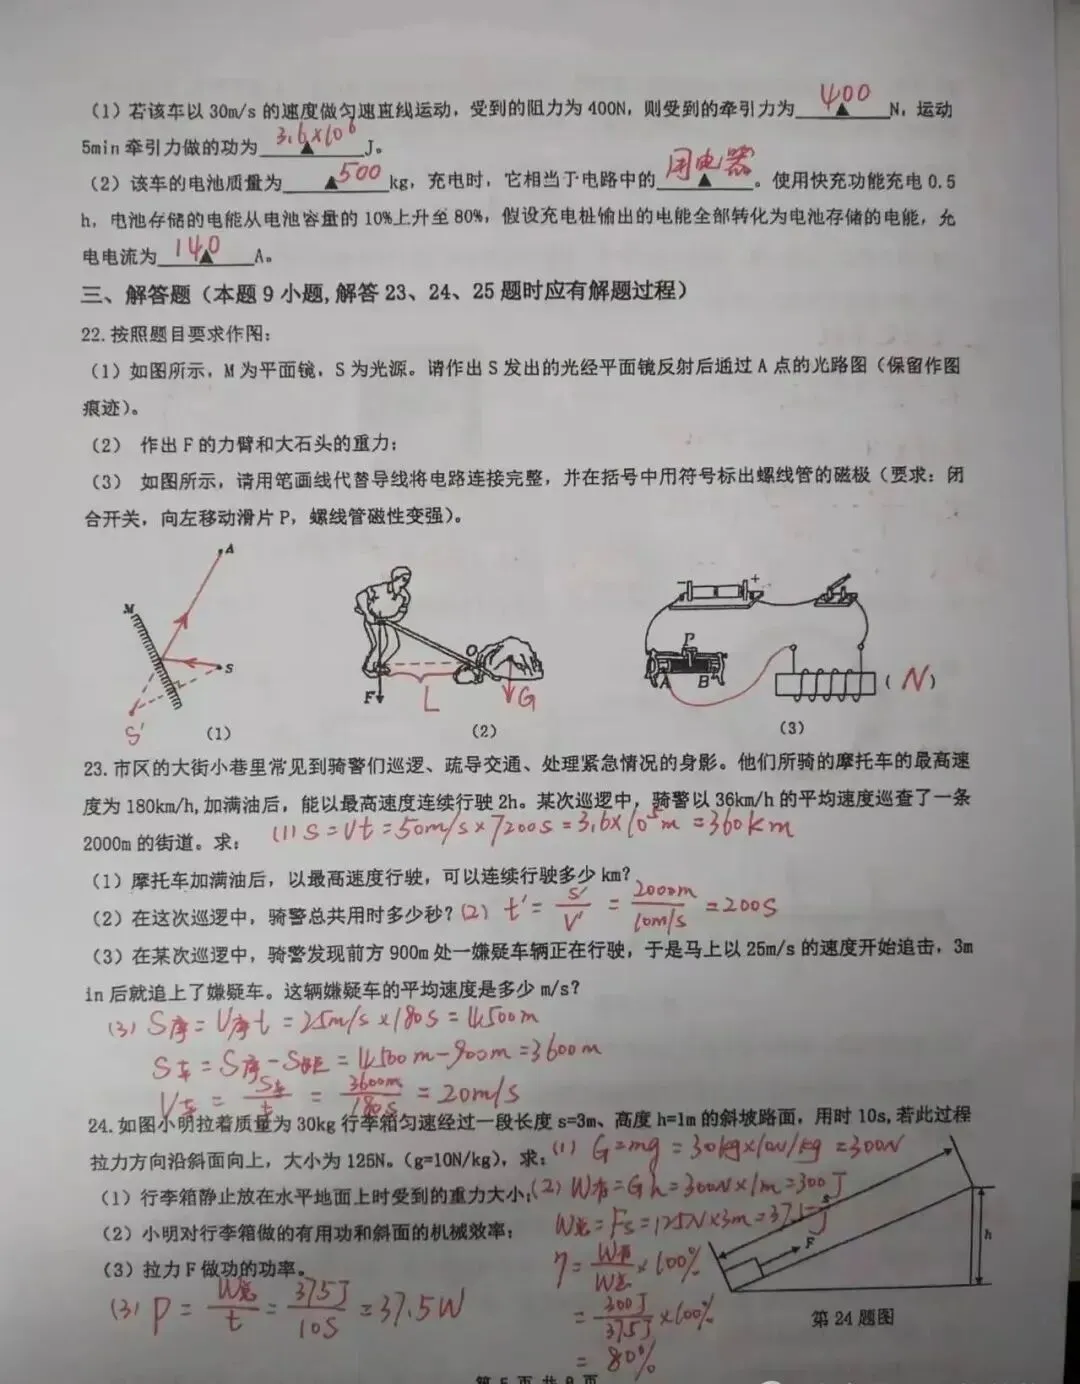 (1)若该车以 30m/s 的速度做匀速直线运动，受到的阻力为 400N，则受到的牵引力为 400 ▲ N，运动
5min 牵引力做的功为 3.6×10⁶ ▲ J。
(2)该车的电池质量为 ▲ 500 kg，充电时，它相当于电路中的 用电器 ▲ 。使用快充功能充电 0.5
h，电池存储的电能从电池容量的 10%上升至 80%，假设充电桩输出的电能全部转化为电池存储的电能，允
电电流为 140 ▲ A。
三、解答题（本题 9 小题，解答 23、24、25 题时应有解题过程）
22.按照题目要求作图：
(1)如图所示，M 为平面镜，S 为光源。请作出 S 发出的光经平面镜反射后通过 A 点的光路图（保留作图
痕迹）。
(2) 作出 F 的力臂和大石头的重力；
(3) 如图所示，请用笔画线代替导线将电路连接完整，并在括号中用符号标出螺线管的磁极（要求：闭
合开关，向左移动滑片 P，螺线管磁性变强）。
A
M
S
S'
(1)
O
F
L
G
(2)
− +
P
A B
( N )
(3)
23.市区的大街小巷里常见到骑警们巡逻、疏导交通、处理紧急情况的身影。他们所骑的摩托车的最高速
度为 180km/h,加满油后，能以最高速度连续行驶 2h。某次巡逻中，骑警以 36km/h 的平均速度巡查了一条
2000m 的街道。求：
(1) S=Vt=50m/s×7200s=3.6×10⁵m=360km
(1)摩托车加满油后，以最高速度行驶，可以连续行驶多少 km？
(2)在这次巡逻中，骑警总共用时多少秒？ (2) t'=S'/V'=2000m/10m/s=200s
(3)在某次巡逻中，骑警发现前方 900m 处一嫌疑车辆正在行驶，于是马上以 25m/s 的速度开始追击，3m
in 后就追上了嫌疑车。这辆嫌疑车的平均速度是多少 m/s？
(3) S摩=V摩t=25m/s×180s=4500m
S车=S摩-S距=4500m-900m=3600m
V车=S车/t=3600m/180s=20m/s
24.如图小明拉着质量为 30kg 行李箱匀速经过一段长度 s=3m、高度 h=1m 的斜坡路面，用时 10s,若此过程
拉力方向沿斜面向上，大小为 125N。（g=10N/kg），求：
(1) G=mg=30kg×10N/kg=300N
(1)行李箱静止放在水平地面上时受到的重力大小；
(2) W有=Gh=300N×1m=300J
(2)小明对行李箱做的有用功和斜面的机械效率；
W总=Fs=125N×3m=375J
(3)拉力 F 做功的功率。
η=W有/W总×100%
=300J/375J×100%
=80%
(3) P=W总/t=375J/10s=37.5W
s
F
h
第 24 题图
第 5 页 共 8 页